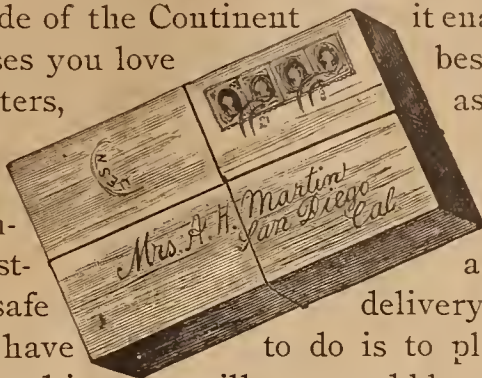 de of the Continent it ena
ses you love bes
ters, as
Mrs. A. H. Martin
San Diego
Cal.
n-
st- a
safe delivery
have to do is to pl